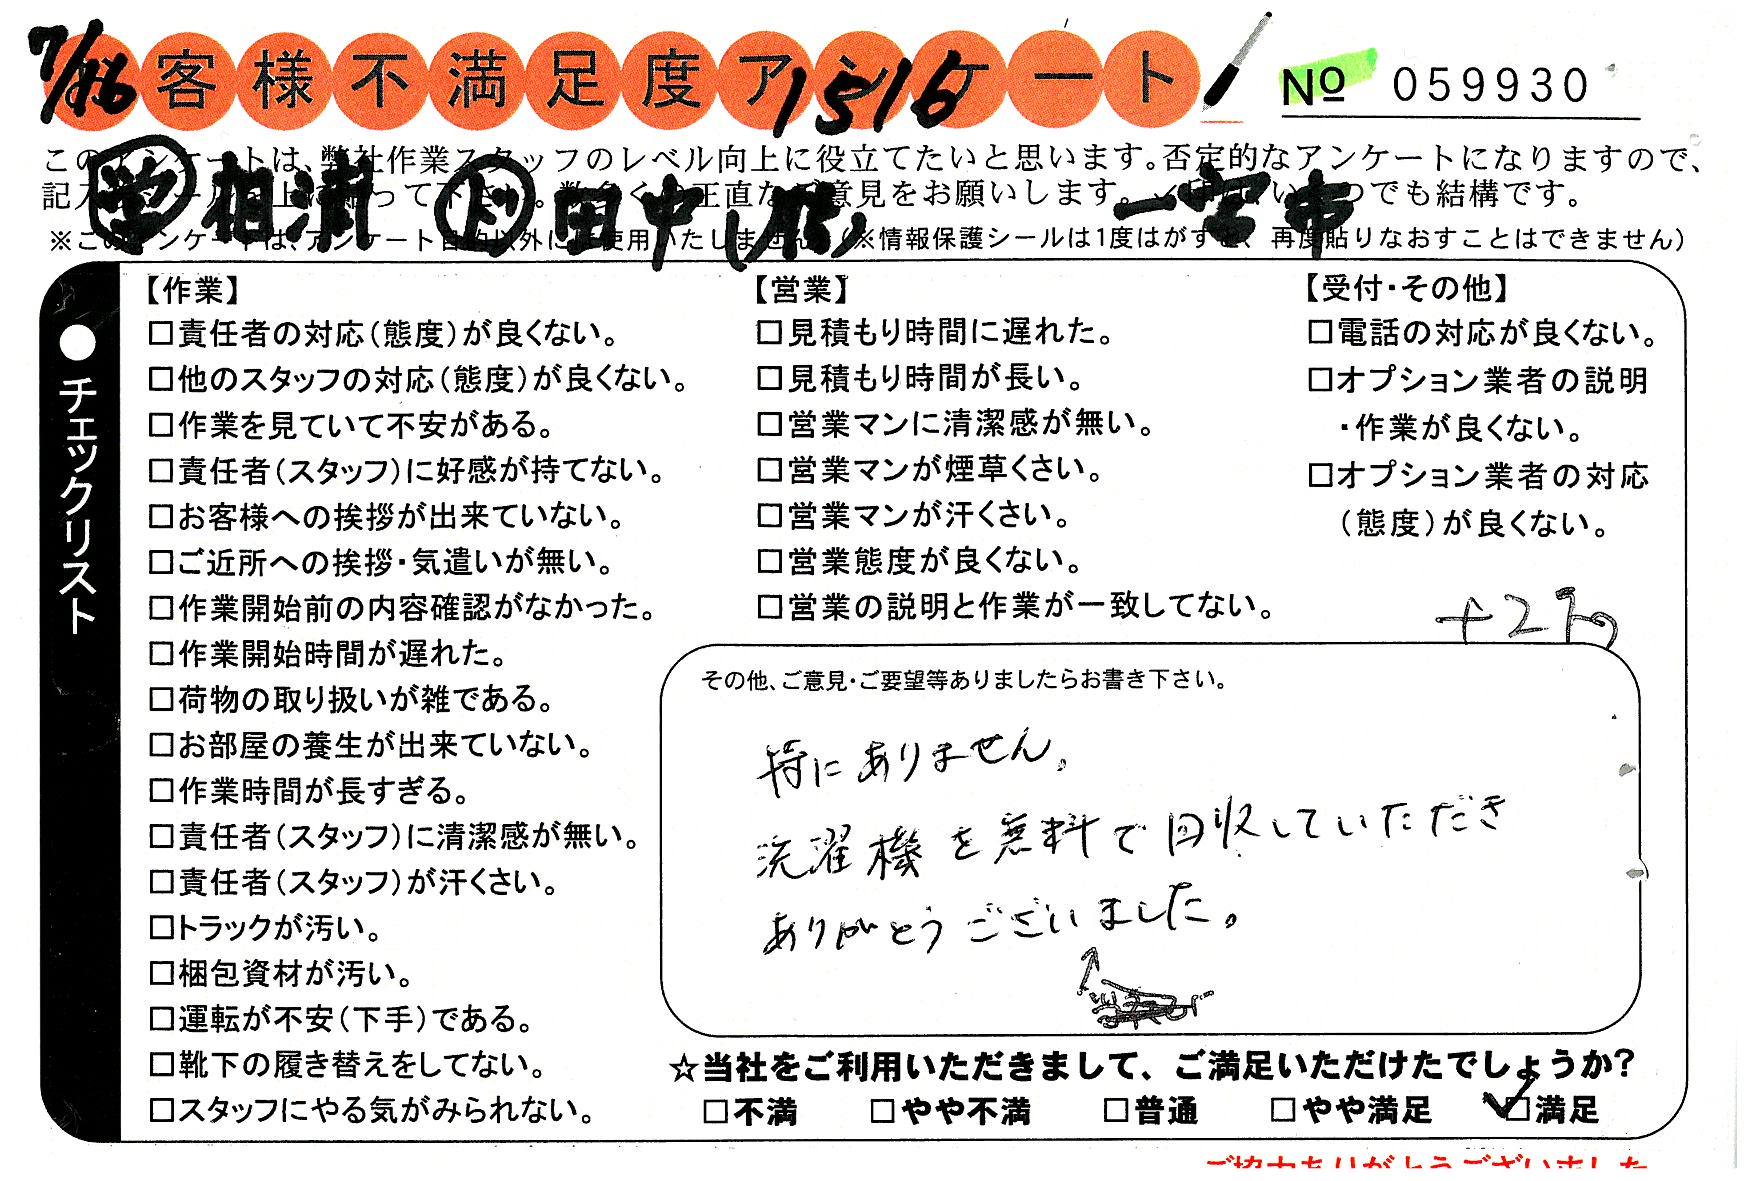 7/16
お客様不満足度アンケート
1516
No 059930
このアンケートは、弊社作業スタッフのレベル向上に役立てたいと思います。否定的なアンケートになりますので、
記入 シール 上に貼って下さい。数多くの正直なご意見をお願いします。 いくつでも結構です。
相浦 ド 田中 一宮市
※このアンケートは、アンケート目的以外には使用いたしません。(※情報保護シールは1度はがすと、再度貼りなおすことはできません)
●チェックリスト
【作業】
□責任者の対応(態度)が良くない。
□他のスタッフの対応(態度)が良くない。
□作業を見ていて不安がある。
□責任者(スタッフ)に好感が持てない。
□お客様への挨拶が出来ていない。
□ご近所への挨拶・気遣いが無い。
□作業開始前の内容確認がなかった。
□作業開始時間が遅れた。
□荷物の取り扱いが雑である。
□お部屋の養生が出来ていない。
□作業時間が長すぎる。
□責任者(スタッフ)に清潔感が無い。
□責任者(スタッフ)が汗くさい。
□トラックが汚い。
□梱包資材が汚い。
□運転が不安(下手)である。
□靴下の履き替えをしてない。
□スタッフにやる気がみられない。
【営業】
□見積もり時間に遅れた。
□見積もり時間が長い。
□営業マンに清潔感が無い。
□営業マンが煙草くさい。
□営業マンが汗くさい。
□営業態度が良くない。
□営業の説明と作業が一致してない。
【受付・その他】
□電話の対応が良くない。
□オプション業者の説明
・作業が良くない。
□オプション業者の対応
(態度)が良くない。
その他、ご意見・ご要望等ありましたらお書き下さい。
特にありません。
洗濯機を無料で回収していただき
ありがとうございました。
☆当社をご利用いただきまして、ご満足いただけたでしょうか?
□不満 □やや不満 □普通 □やや満足 □満足
ご協力ありがとうございました